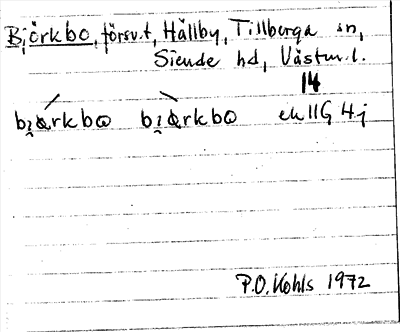 Björkbo, försv.t, Hällby, Tillberga sn,
Siende hd, Västm.l.
14
bi̯ø̀rkbo bi̯ø̀rkbo ek 11G 4j
P.O. Kohls 1972